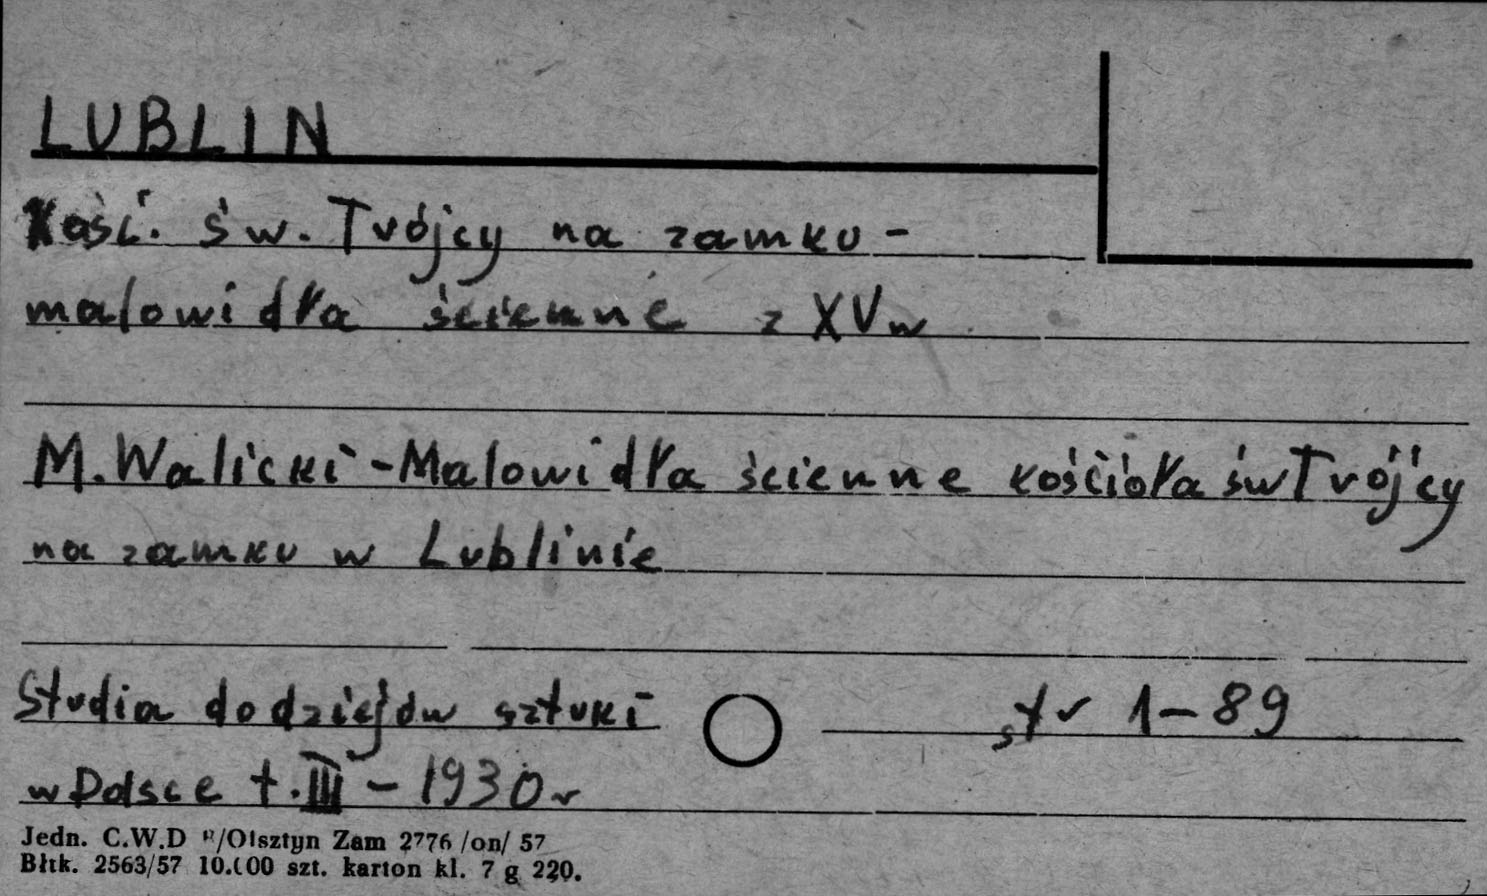 LUBLIN
Kość. św. Trójcy na zamku -
malowidła ścienne z XV w
M. Walicki - Malowidła ścienne kościoła św Trójcy
na zamku w Lublinie
Studia do dziejów sztuki str 1-89
w Polsce t. III - 1930 r
Jedn. C.W.D /Olsztyn Zam 2776 /on/ 57
Błtk. 2563/57 10.000 szt. karton kl. 7 g 220.